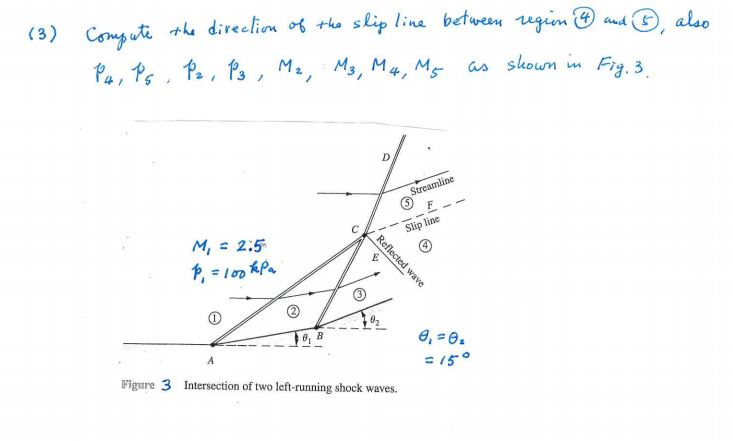 (3) Compute the direction of the slip line between region ④ and ⑤, also
p₄, p₅, p₂, p₃, M₂, M₃, M₄, M₅ as shown in Fig. 3.
D
Streamline
⑤ F
Slip line
C
④
Reflected wave
E
M₁ = 2.5
p₁ = 100 kPa
③
①
②
θ₂
θ₁ B
θ₁ = θ₂
= 15°
A
Figure 3 Intersection of two left-running shock waves.